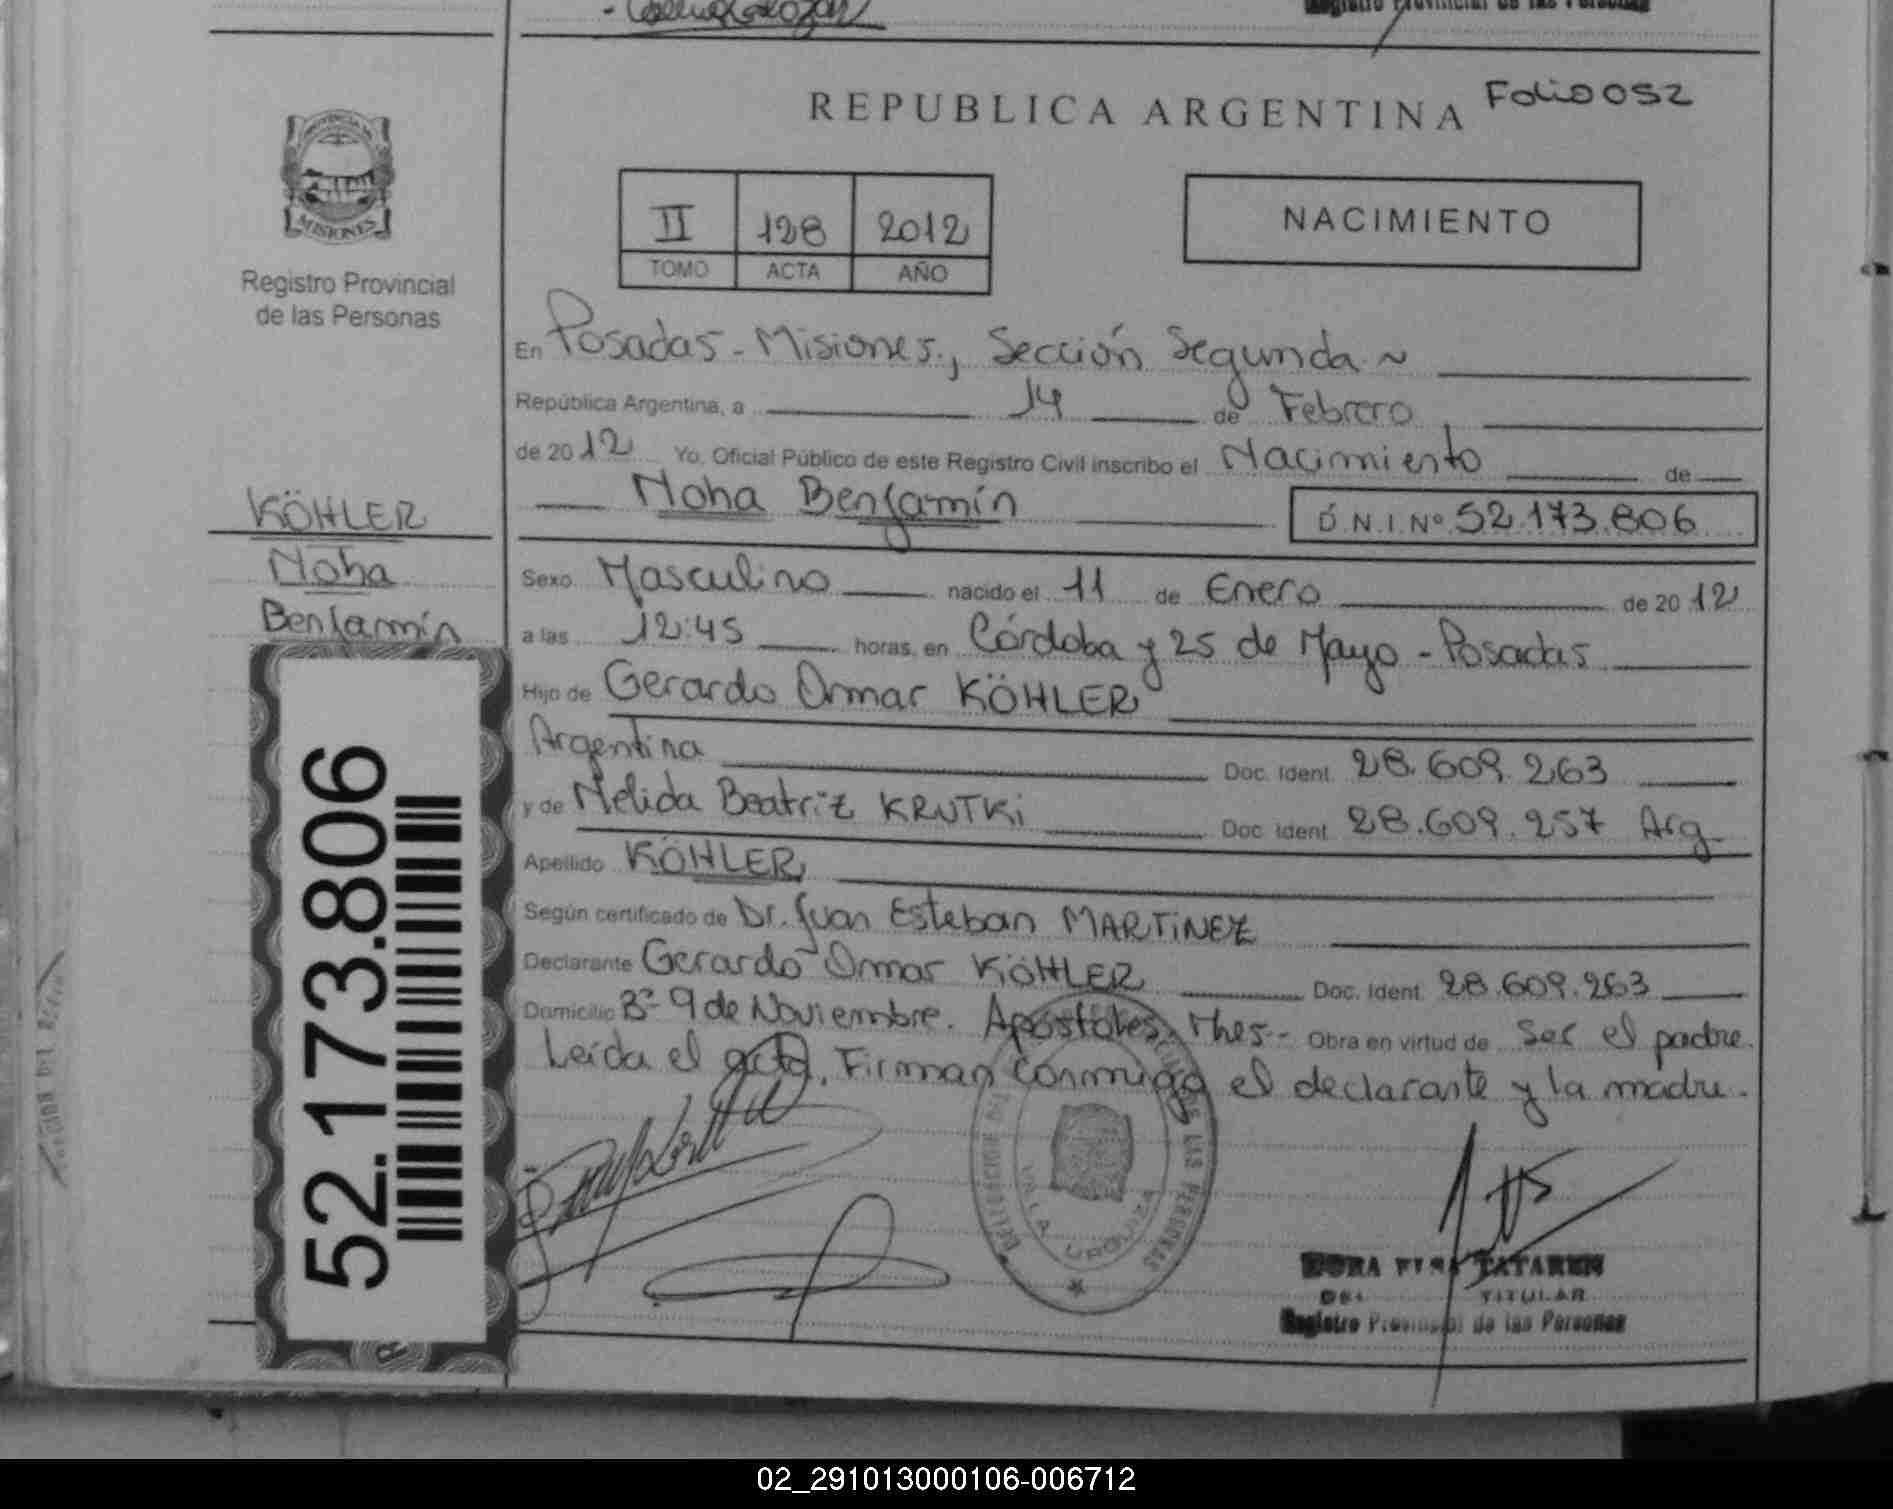 Registro Provincial de las Personas
REPUBLICA ARGENTINA
Folio 052
PROVINCIA DE
MISIONES
Registro Provincial
de las Personas
II 128 2012
TOMO ACTA AÑO
NACIMIENTO
En Posadas - Misiones, Sección Segunda ~
República Argentina, a 14 de Febrero
de 2012 Yo, Oficial Público de este Registro Civil inscribo el Nacimiento de
Noha Benjamín D.N.I. Nº 52.173.806
KÖHLER
Noha
Benjamín
Sexo Masculino nacido el 11 de Enero de 2012
a las 12:45 horas, en Córdoba y 25 de Mayo - Posadas
Hijo de Gerardo Omar KÖHLER
Argentina Doc. Ident. 28.609.263
y de Nelida Beatriz KRUTKi Doc. Ident. 28.609.257 Arg.
Apellido KÖHLER
Según certificado de Dr. Juan Esteban MARTiNEZ
Declarante Gerardo Omar KÖHLER Doc. Ident. 28.609.263
Domicilio Bº 9 de Noviembre. Apóstoles, Mnes.- Obra en virtud de ser el padre.
Leída el acta, Firman conmigo el declarante y la madre.
52.173.806
DE LAS PERSONAS
VILLA URQUIZA
TATAREN
TITULAR
Registro Provincial de las Personas
02_291013000106-006712